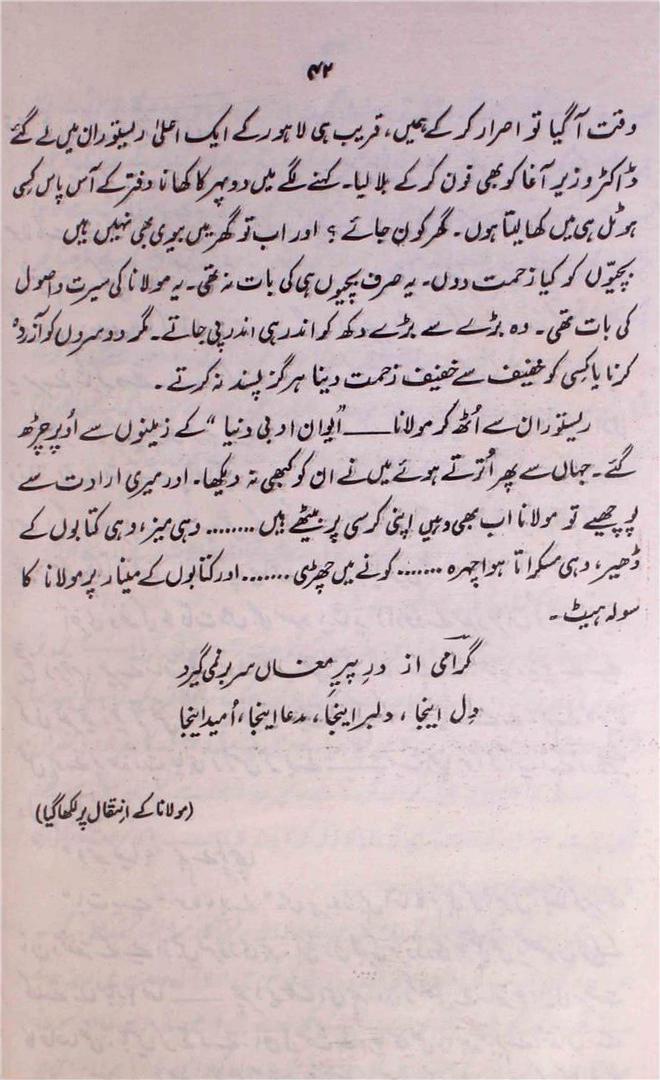 ۴۲
وقت آگیا تو اصرار کر کے ہمیں، قریب ہی لاہور کے ایک اعلیٰ ریستوران میں لے گئے
ڈاکٹر وزیر آغا کو بھی فون کر کے بلا لیا۔ کہنے لگے میں دوپہر کا کھانا دفتر کے آس پاس کسی
ہوٹل ہی میں کھا لیتا ہوں۔ گھر کون جائے؟ اور اب تو گھر میں بیوی بھی نہیں ہیں
بچیّوں کو کیا زحمت دوں۔ یہ صرف بچیوں ہی کی بات نہ تھی۔ یہ مولانا کی سیرت و اصول
کی بات تھی۔ وہ بڑے سے بڑے دکھ کو اندر ہی اندر پی جاتے۔ مگر دوسروں کو آزردہ
کرنا یا کسی کو خفیف سے خفیف زحمت دینا ہرگز پسند نہ کرتے۔
ریستوران سے اُٹھ کر مولانا ــــــ "ایوان ادبی دنیا" کے زینوں سے اُوپر چڑھ
گئے۔ جہاں سے پھر اُترتے ہوئے میں نے ان کو کبھی نہ دیکھا۔ اور میری ارادت سے
پوچھیے تو مولانا اب بھی وہیں اپنی کرسی پر بیٹھے ہیں ........ وہی میز، وہی کتابوں کے
ڈھیر، وہی مسکراتا ہوا چہرہ ....... کونے میں چھڑی ....... اور کتابوں کے مینار پر مولانا کا
سولہ ہیٹ۔
گرامیؔ از درِ پیرِ مغاں سر بر نمی گیرد
دِل اینجا، دلبر اینجا، مدعا اینجا، اُمید اینجا
(مولانا کے انتقال پر لکھا گیا)